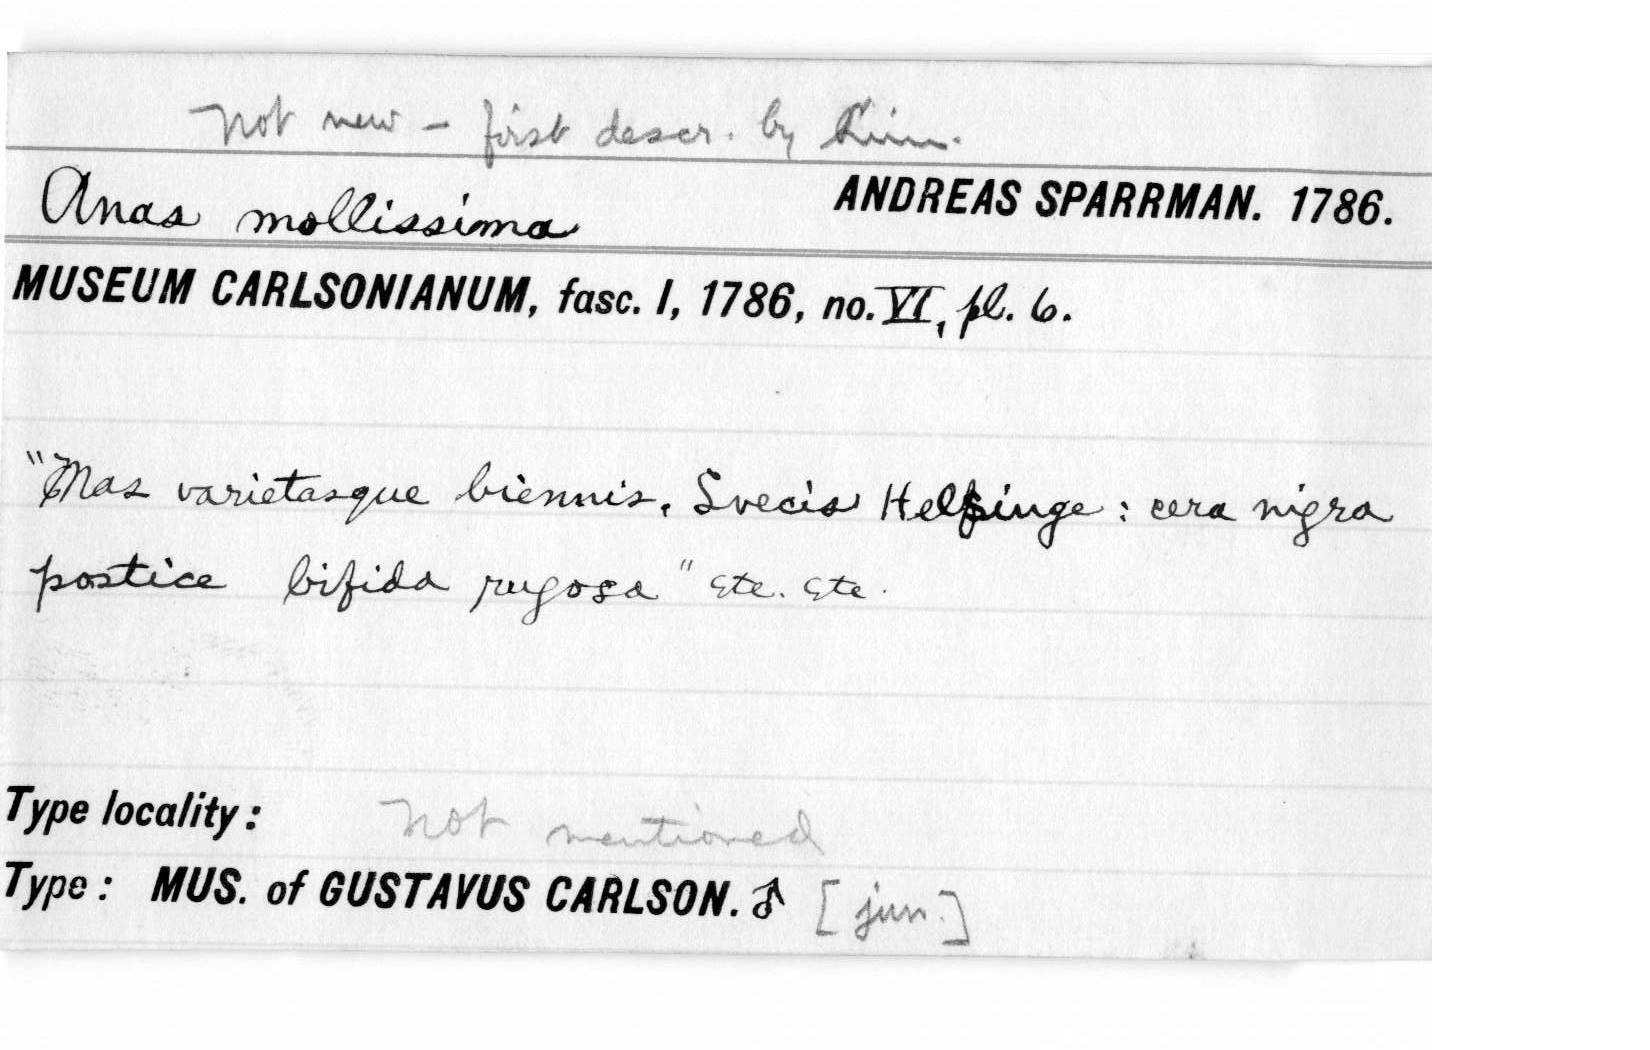 Not new - first descr. by Linn.
Anas mollissima ANDREAS SPARRMAN. 1786.
MUSEUM CARLSONIANUM, fasc. I, 1786, no. VI, pl. 6.
"Mas varietasque biennis, Svecis Helsinge : cera nigra
postice bifida rugosa" etc. etc.
Type locality : Not mentioned
Type : MUS. of GUSTAVUS CARLSON. ♂ [juv.]